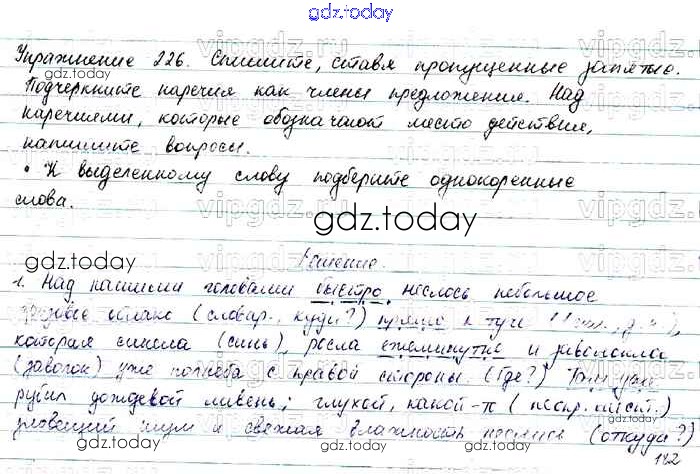 gdz.today
Упражнение 226. Спишите, ставя пропущенные запятые.
gdz.today
Подчеркните наречия как члены предложения. Над
наречиями, которые обозначают место действия,
напишите вопросы.
• К выделенному слову подберите однокоренные
слова.
gdz.today
gdz.today
Решение.
1. Над нашими головами быстро неслось небольшое
облако (словар., куда?) прямо к туче
которая синела (синь), росла ежеминутно и заволокла
(заволок) уже полнеба с правой стороны. (Где?) Там уже
рубил дождевой ливень; глухой, какой-то
зловещий шум и свежая влажность неслись (откуда?)
gdz.today
gdz.today
gdz.today
142